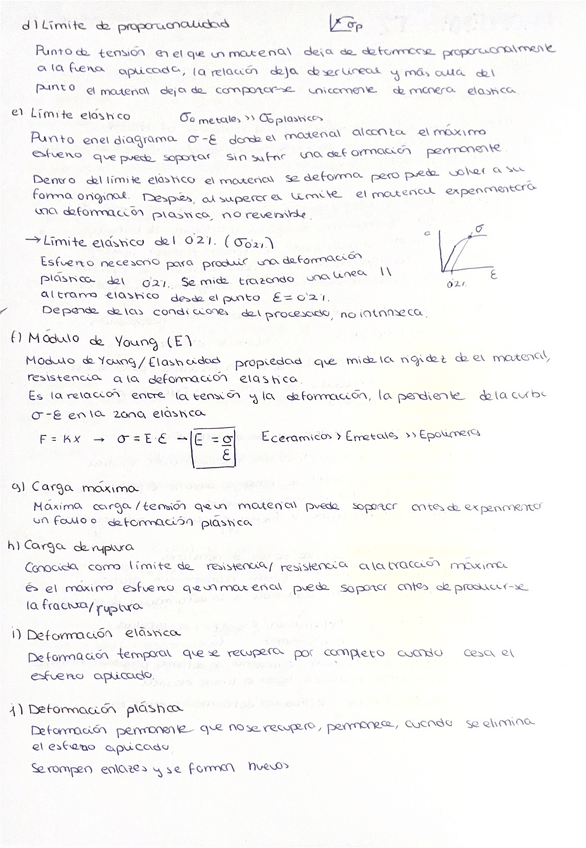 d) Límite de proporcionalidad σp
Punto de tensión en el que un material deja de deformarse proporcionalmente
a la fuerza aplicada, la relación deja de ser lineal y más allá del
punto el material deja de comportarse unicamente de manera elástica
e) Límite elástico σo metales >> σo plásticos
Punto en el diagrama σ-ε donde el material alcanza el máximo
esfuerzo que puede soportar sin sufrir una deformación permanente.
Dentro del límite elástico el material se deforma pero puede volver a su
forma original. Después, al superar el límite el material experimentará
una deformación plástica, no reversible.
→ Límite elástico del 0'2%. (σ0'2%)
Esfuerzo necesario para producir una deformación
plástica del 0'2%. Se mide trazando una línea ||
al tramo elástico desde el punto ε=0'2%.
Depende de las condiciones del procesado, no intrínseca.
σ
σ
ε
0'2%
f) Módulo de Young (E)
Módulo de Young/Elasticidad propiedad que mide la rigidez de el material,
resistencia a la deformación elástica.
Es la relación entre la tensión y la deformación, la pendiente de la curba
σ-ε en la zona elástica
F = Kx → σ = E·ε → E = σ/ε Eceramicos > Emetales >> Epolimeros
g) Carga máxima
Máxima carga/tensión que un material puede soportar antes de experimentar
un fallo o deformación plástica
h) Carga de ruptura
Conocida como límite de resistencia/resistencia a la tracción máxima
és el máximo esfuerzo que un material puede soportar antes de producir-se
la fractura/ruptura
i) Deformación elástica
Deformación temporal que se recupera por completo cuando cesa el
esfuerzo aplicado.
j) Deformación plástica
Deformación permanente que no se recupera, permanece, cuando se elimina
el esfuerzo aplicado
Se rompen enlazes y se forman nuevos